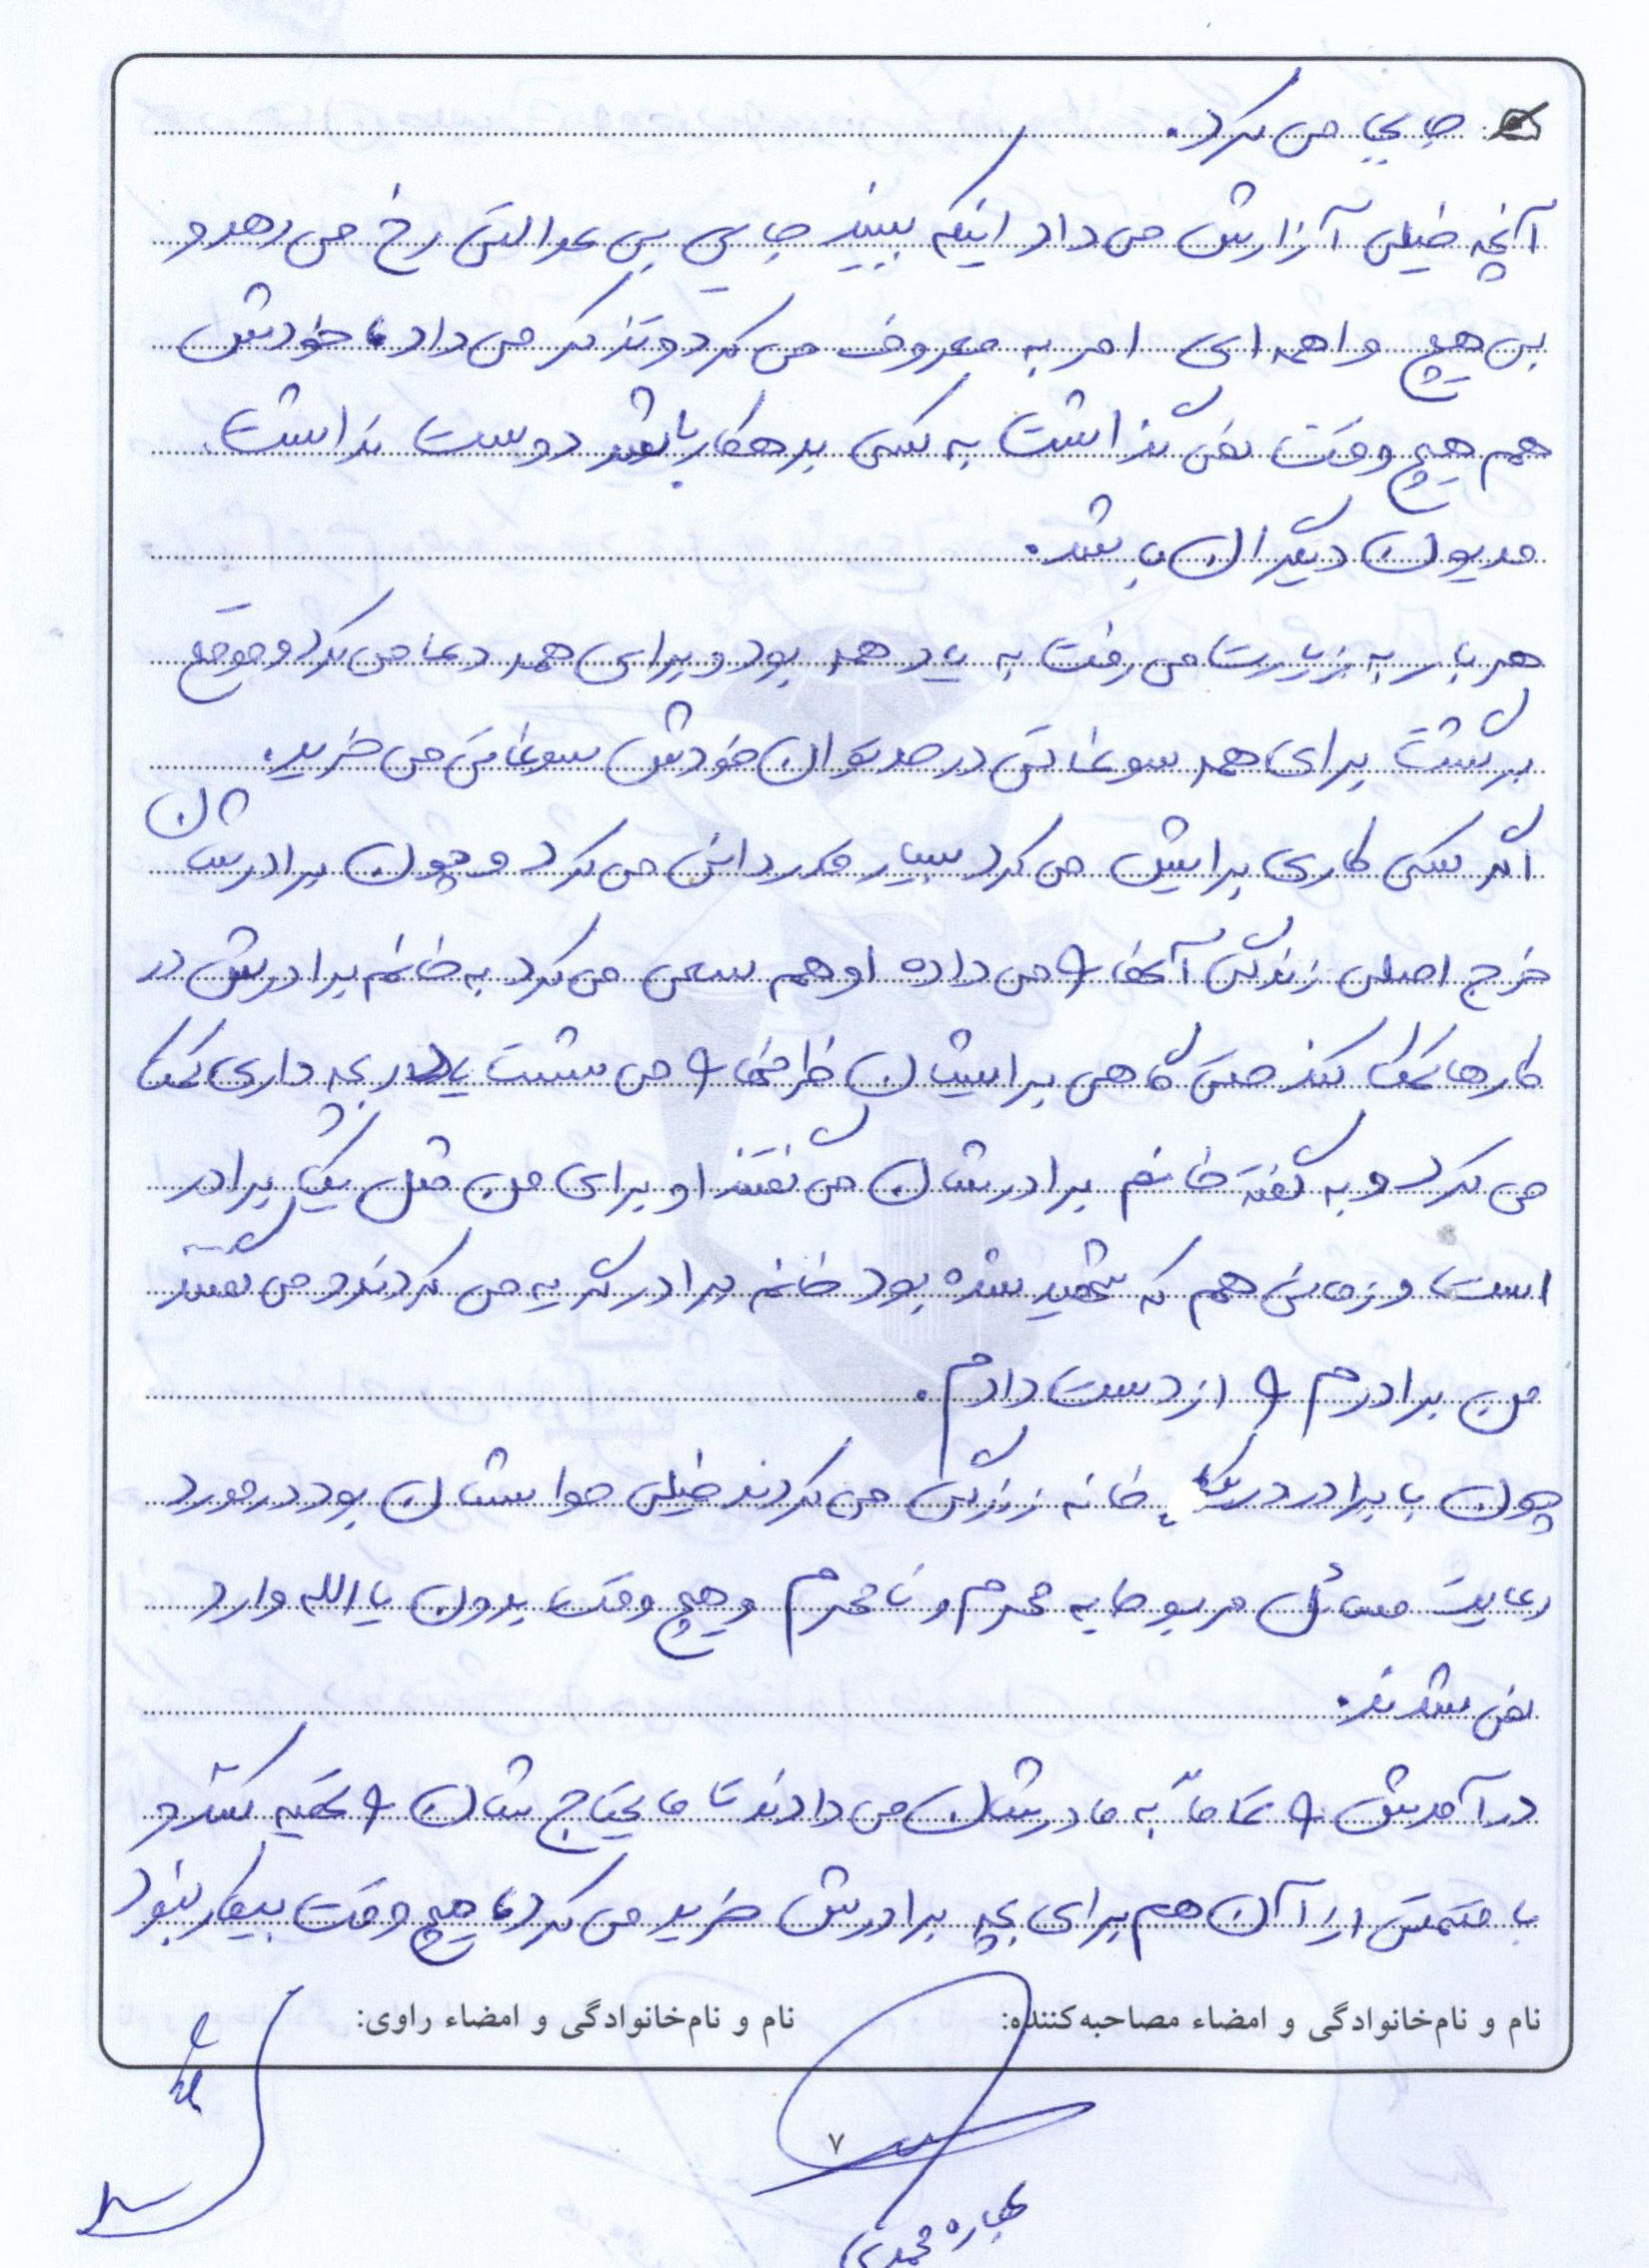 جایی می کرد.
آنچه خیلی آزارش می داد اینکه ببیند جایی بی عدالتی رخ می دهد و
بی هیچ واهمه ای امر به معروف می کرد و تذکر می داد، خودش
هم هیچ وقت نمی گذاشت به کسی بدهکار باشد دوست نداشت
مدیون دیگران باشد.
هر بار به زیارت می رفت به یاد همه بود و برای همه دعا می کرد و موقع
برگشت برای همه سوغاتی در حد توان خودش سوغاتی می خرید.
اگر کسی کاری برایش می کرد بسیار قدردانی می کرد و چون برادرشان
خرج اصلی زندگی آنها را می داده او هم سعی می کرد به خانم برادرش در
کارها کمک کند حتی گاهی برایشان ظرفها را می شست یا در بچه داری کمک
می کرد و به گفته خانم برادرشان می گفتند او برای من مثل یک برادر
است و زمانی هم که شهید شده بود خانم برادر گریه می کردند و می گفتند
من برادرم را از دست دادم.
چون با برادر در یک خانه زندگی می کردند خیلی حواسشان بود در مورد
رعایت مسائل مربوط به محرم و نامحرم و هیچ وقت بدون یا الله وارد
نمی شدند.
درآمدش را تماماً به مادرشان می دادند تا مایحتاج شان را تهیه کنند و
با قسمتی از آن هم برای بچه برادرش خرید می کرد، هیچ وقت بیکار نبود
نام و نام‌خانوادگی و امضاء مصاحبه‌کننده:
نام و نام‌خانوادگی و امضاء راوی:
۷
بهاره محمدی